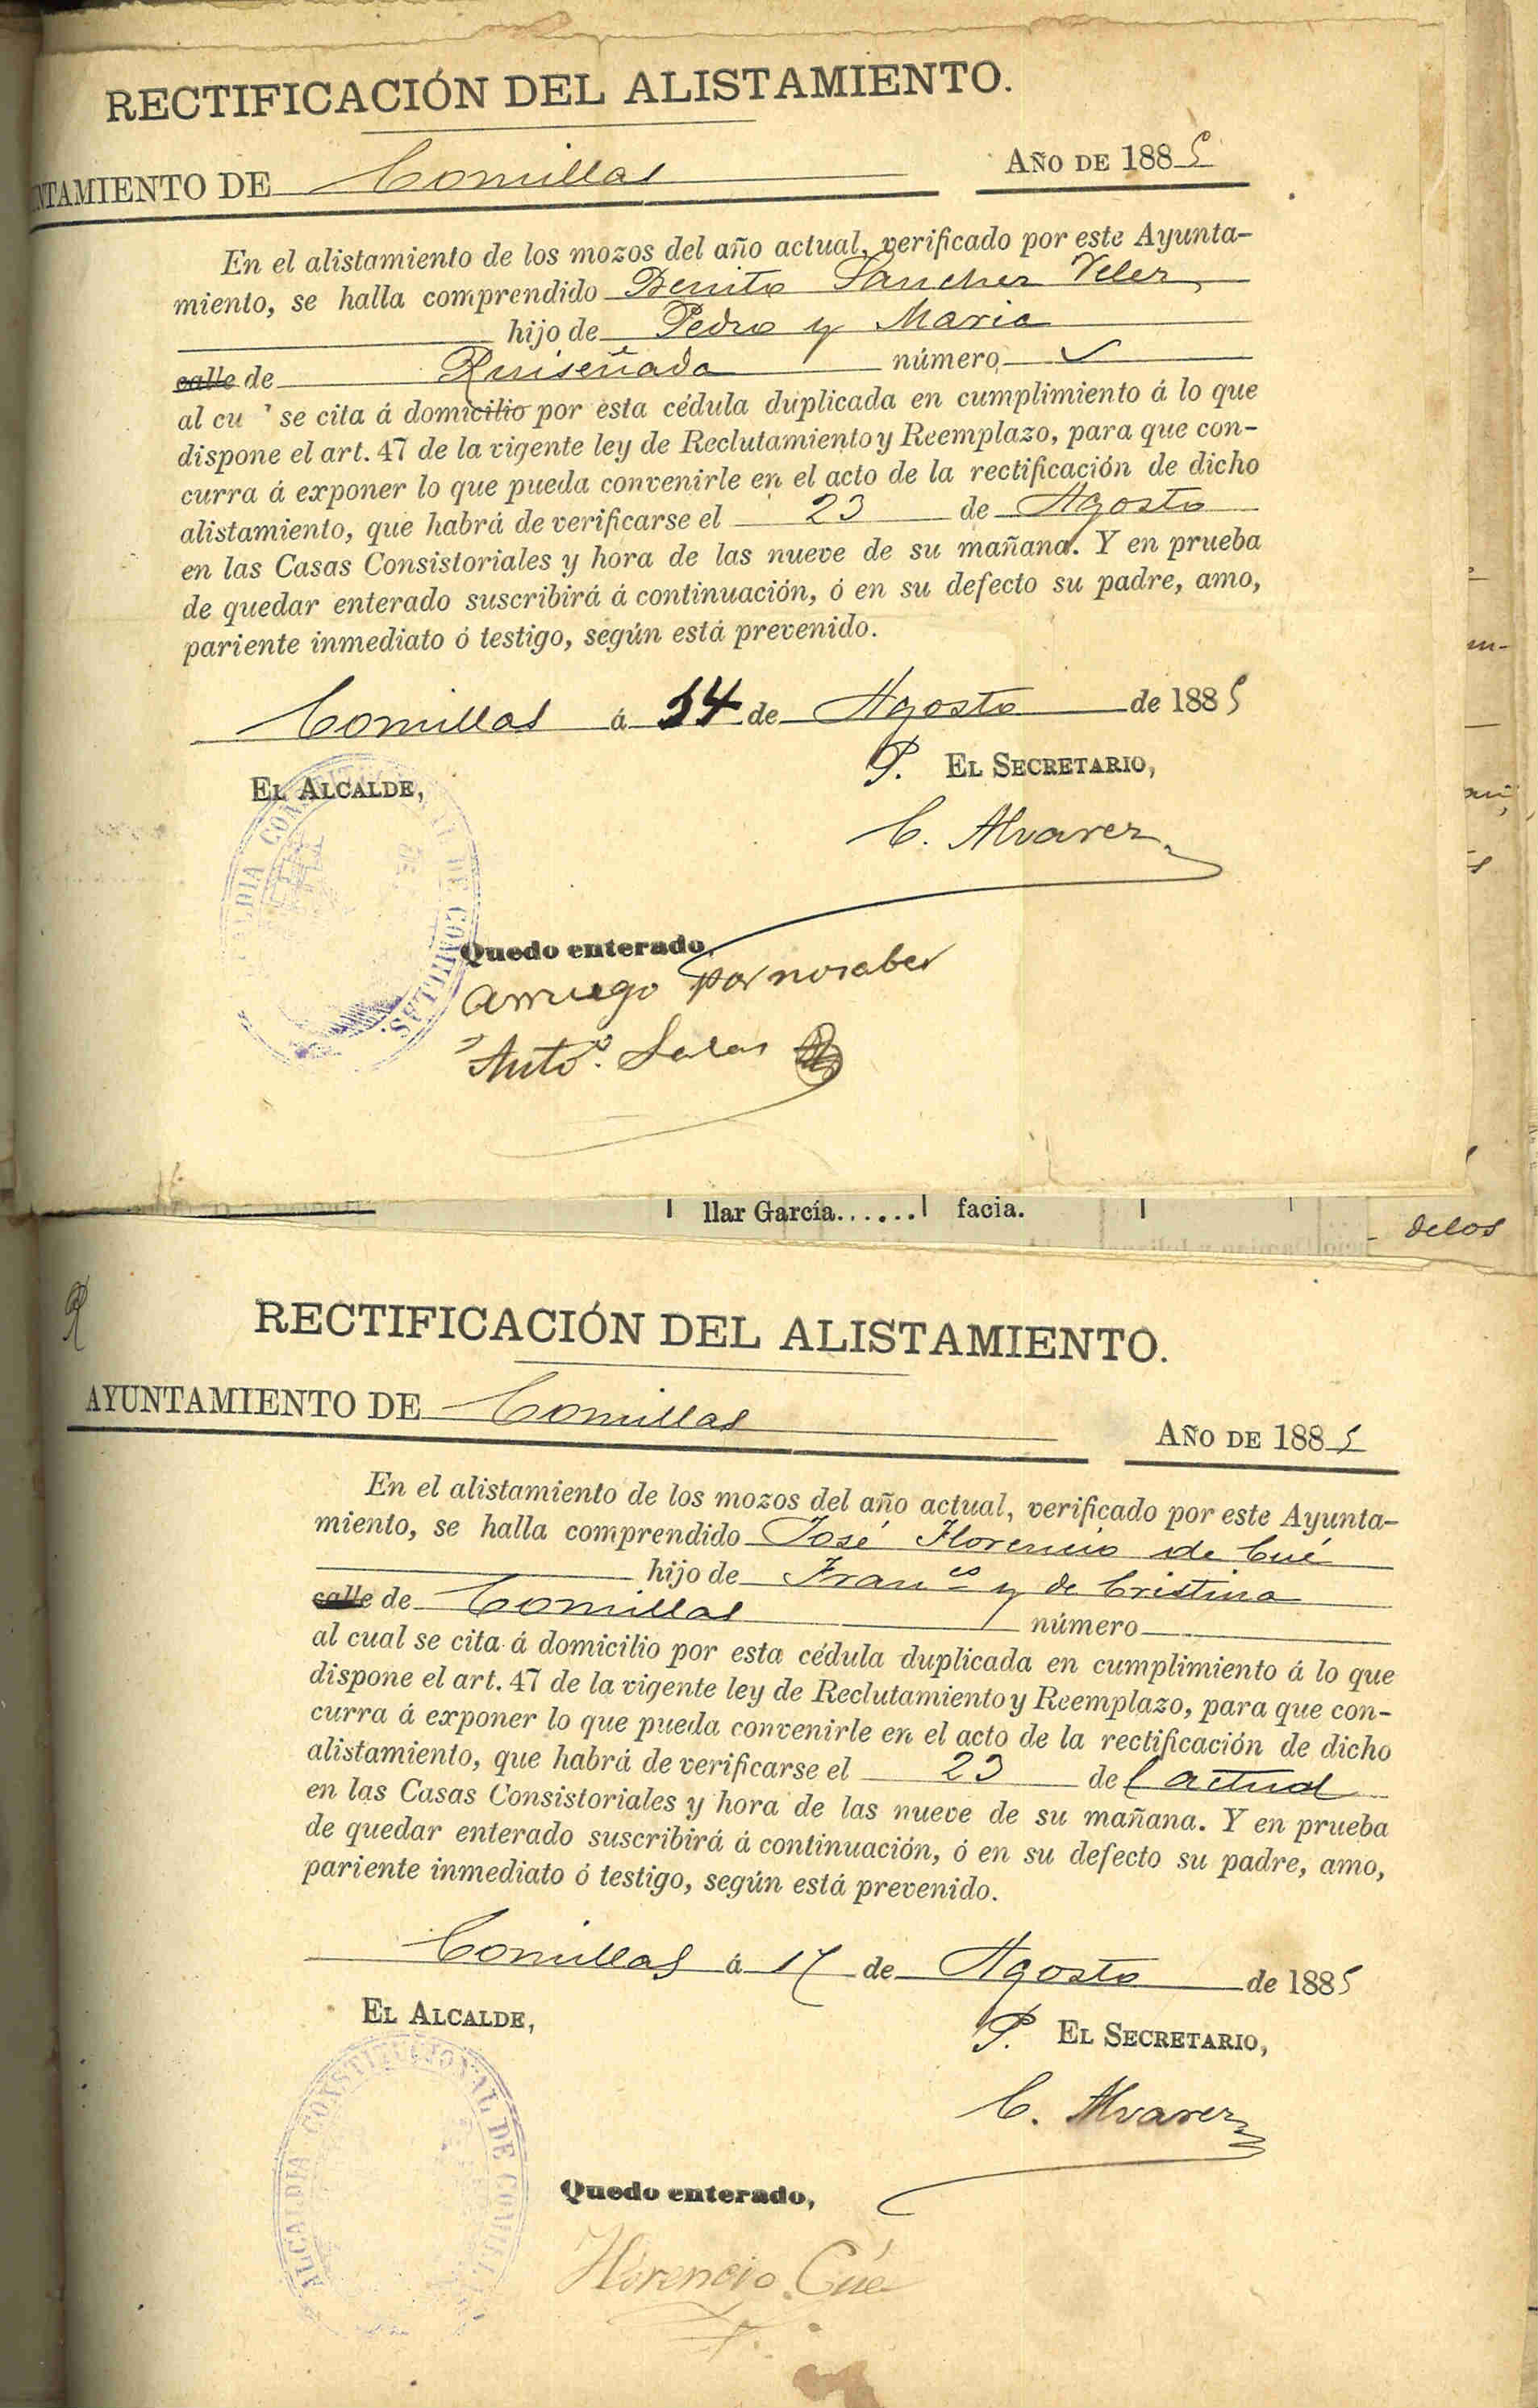 RECTIFICACIÓN DEL ALISTAMIENTO.
NTAMIENTO DE Comillas AÑO DE 1885
En el alistamiento de los mozos del año actual, verificado por este Ayunta-
miento, se halla comprendido Benito Sanchez Velez,
hijo de Pedro y Maria
calle de Ruiseñada número
al cu se cita á domicilio por esta cédula duplicada en cumplimiento á lo que
dispone el art. 47 de la vigente ley de Reclutamiento y Reemplazo, para que con-
curra á exponer lo que pueda convenirle en el acto de la rectificación de dicho
alistamiento, que habrá de verificarse el 23 de Agosto
en las Casas Consistoriales y hora de las nueve de su mañana. Y en prueba
de quedar enterado suscribirá á continuación, ó en su defecto su padre, amo,
pariente inmediato ó testigo, según está prevenido.
Comillas á 14 de Agosto de 1885
EL ALCALDE, P. EL SECRETARIO,
C. Alvarez
Quedo enterado,
arruego por no saber
Antº. Salas
llar García...... facia.
delos
RECTIFICACIÓN DEL ALISTAMIENTO.
AYUNTAMIENTO DE Comillas
AÑO DE 1885
En el alistamiento de los mozos del año actual, verificado por este Ayunta-
miento, se halla comprendido José Florencio de Cué
hijo de Franco y de Cristina
calle de Comillas número
al cual se cita á domicilio por esta cédula duplicada en cumplimiento á lo que
dispone el art. 47 de la vigente ley de Reclutamiento y Reemplazo, para que con-
curra á exponer lo que pueda convenirle en el acto de la rectificación de dicho
alistamiento, que habrá de verificarse el 23 del actual
en las Casas Consistoriales y hora de las nueve de su mañana. Y en prueba
de quedar enterado suscribirá á continuación, ó en su defecto su padre, amo,
pariente inmediato ó testigo, según está prevenido.
Comillas á 17 de Agosto de 1885
EL ALCALDE,
P. EL SECRETARIO,
ALCALDIA CONSTITUCIONAL DE COMILLAS
C. Alvarez
Quedo enterado,
Florencio Cué